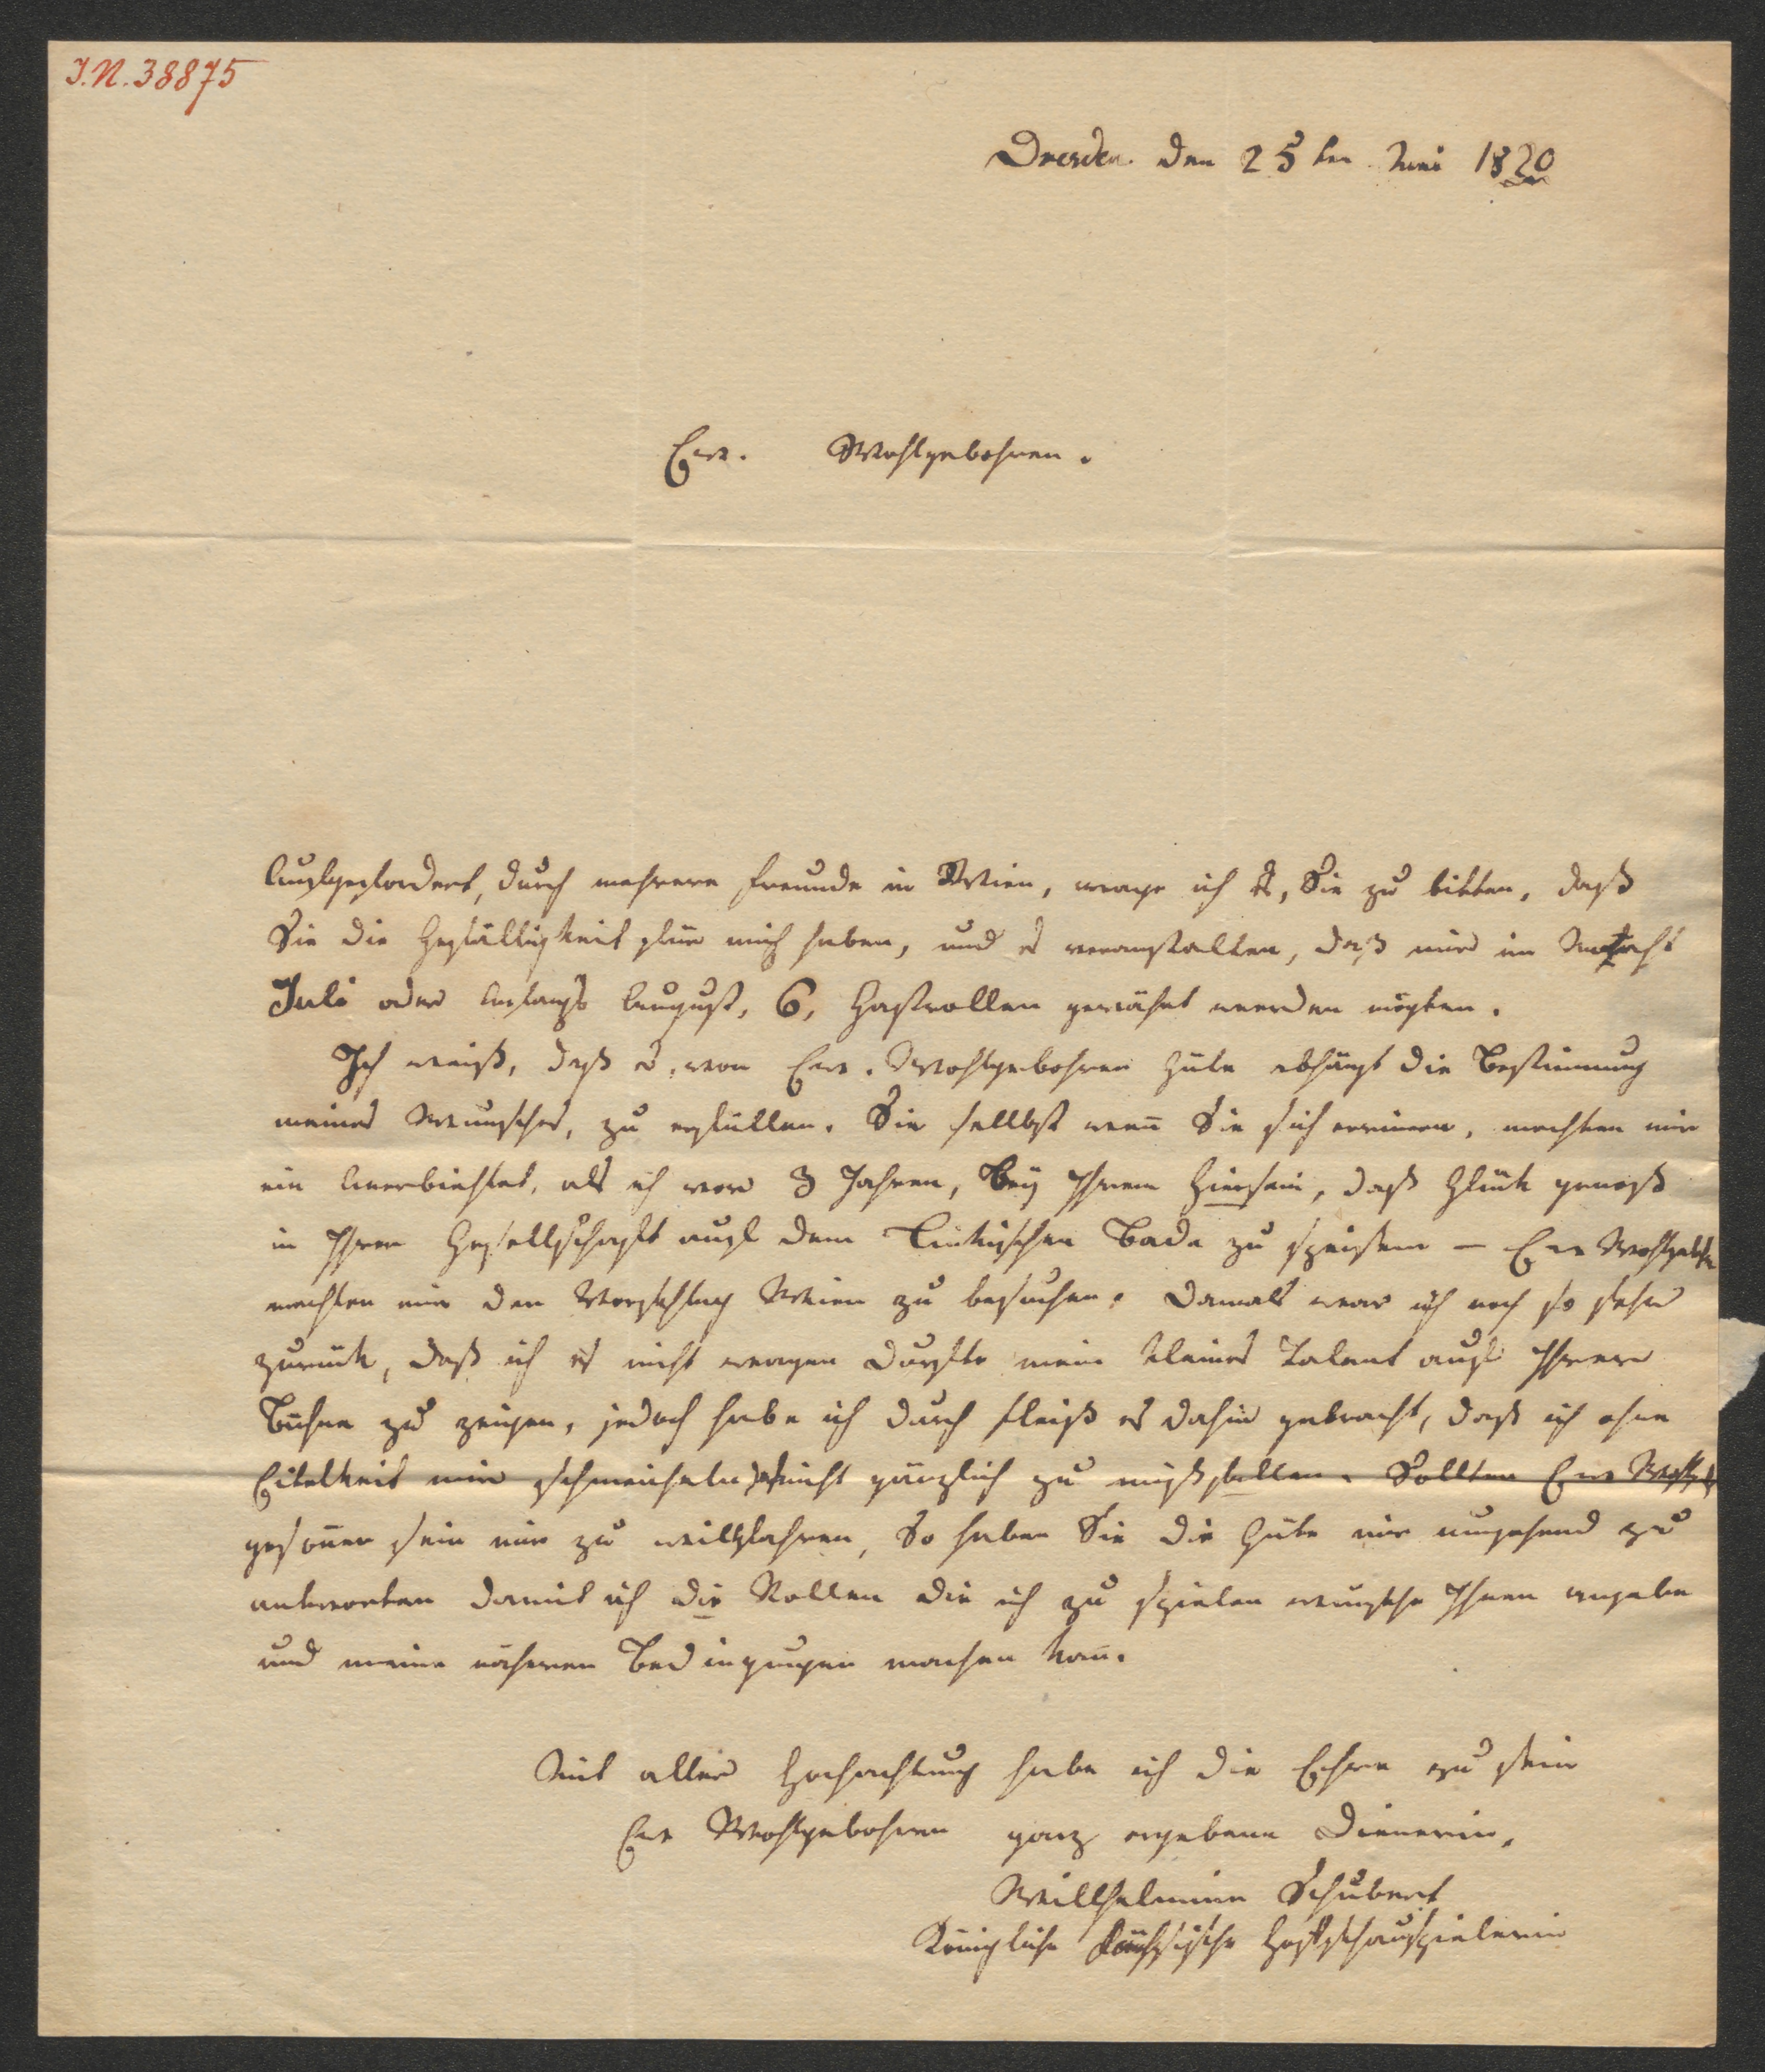 I.N. 38875
Dresden. den 25ten Mai 1820
Ew. Wohlgebohren.
Aufgefordert, durch mehrere Freunde in Wien, wage ich es, Sie zu bitten, daß
Sie die Gefälligkeit für mich haben, und es veranstalten, daß mir im
Juli oder Anfangs August, 6, Gastrollen gewährt werden mögten.
Ich weiß, daß es, von Ew. Wohlgebohren Güte abhängt die Bestimmung
meines Wunsches, zu erfüllen. Sie sellbst wenn̄ Sie sich erinern, machten mir
ein Anerbiethet, als ich vor 3 Jahren, Bey Ihrem Hiersein, daß Glück genoß
in Ihrer Gesellschaft auf dem Linkischen Bade zu speisen – Ew Wohlgeb
machten mir den Vorschlag Wien zu besuchen. Damals war ich noch so sehr
zurück, daß ich es nicht wagen durfte mein kleines Talent auf Ihrer
Bühne zu zeigen, jedoch habe ich durch Fleiß es dahin gebracht, daß ich ohne
Eitelkeit mir schmeicheln nicht gänzlich zu mißfallen. Sollten Ew Wohlg
gesoñen sein mir zu willfahren, So haben Sie die Güte mir umgehend zu
antworten damit ich die Rollen die ich zu spielen wünsche Ihnen angebe
und meine näheren Bedingungen machen kan̄.
Mit aller Hochachtung habe ich die Ehre zu sein
Ew Wohlgebohren ganz ergebene Dienerin,
Willhelmine Schubert
Königliche Sächsische Hofschauspielerin